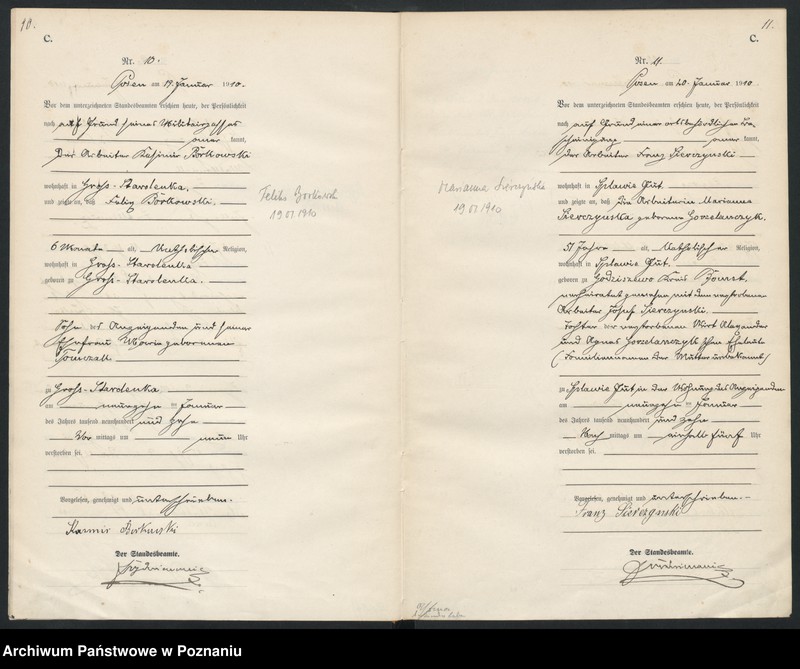 10.
C.
Nr. 10.
Posen am 19. Januar 1910.
Vor dem unterzeichneten Standesbeamten erschien heute, der Persönlichkeit
nach auf Grund seines Militairpasses
kannt,
Der Arbeiter Kasimir Borkowski
wohnhaft in Gross-Starolenka,
und zeigte an, daß Felix Borkowski,
6 Monate alt, katholischer Religion,
wohnhaft in Gross-Starolenka
geboren zu Gross-Starolenka,
Sohn des Anzeigenden und seiner
Ehefrau Maria geborenen
Tomczak
zu Gross-Starolenka,
am neunzehn ten Januar
des Jahres tausend neunhundert und zehn
Vor mittags um neun Uhr
verstorben sei.
Vorgelesen, genehmigt und unterschrieben.
Kasmir Borkowski
Der Standesbeamte.
Feliks Borkowski
19 01 1910
11.
C.
Nr. 11.
Posen am 20. Januar 1910
Vor dem unterzeichneten Standesbeamten erschien heute, der Persönlichkeit
nach auf Grund einer ortsbehördlichen Be-
scheinigung kannt,
der Arbeiter Franz Sierczynski
wohnhaft in Splawie Gut
und zeigte an, daß die Arbeiterin Marianna
Sierczynska geborene Gorzelanczyk,
51 Jahre alt, katholischer Religion,
wohnhaft in Splawie Gut,
geboren zu Godziszewo Kreis
verheiratet gewesen mit dem verstorbenen
Arbeiter Josef Sierczynski,
Tochter der verstorbenen Wirt Alexander
und Agnes Gorzelanczyk'schen Eheleute
(Familienname der Mutter unbekannt)
zu Splawie Gut, in der Wohnung des Anzeigenden
am neunzehn ten Januar
des Jahres tausend neunhundert und zehn
Nach mittags um einhalb fünf Uhr
verstorben sei.
Vorgelesen, genehmigt und unterschrieben.
Franz Sierczynski
Der Standesbeamte.
Marianna Sierczyńska
19 01 1910
Archiwum Państwowe w Poznaniu